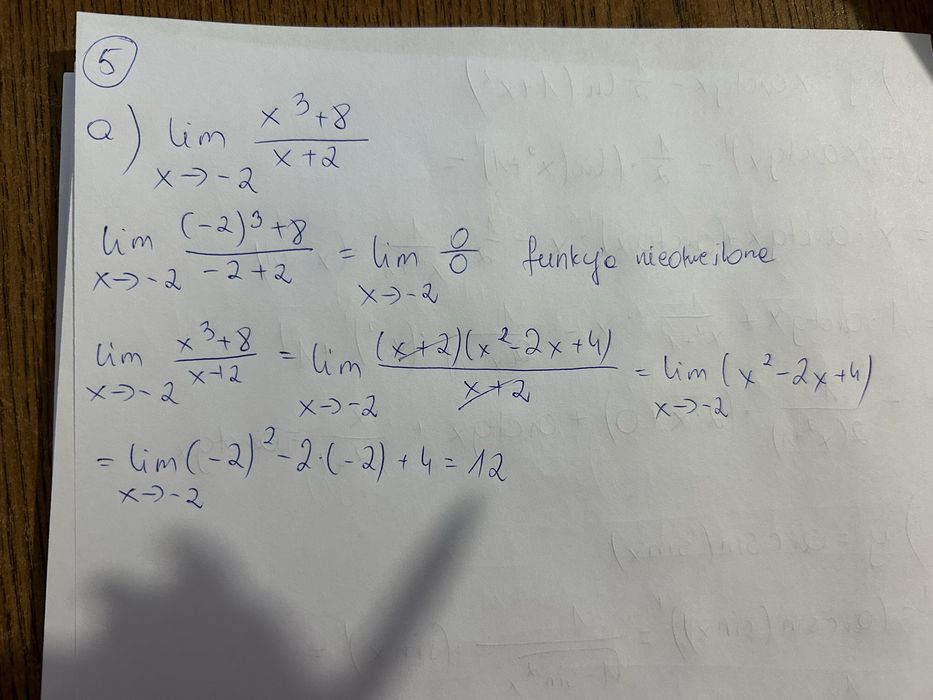 5
a) lim x→-2 (x³+8)/(x+2)
lim x→-2 ((-2)³+8)/(-2+2) = lim x→-2 0/0 funkcja nieokreślona
lim x→-2 (x³+8)/(x+2) = lim x→-2 ((x+2)(x²-2x+4))/(x+2) = lim x→-2 (x²-2x+4)
= lim x→-2 (-2)²-2·(-2)+4 = 12